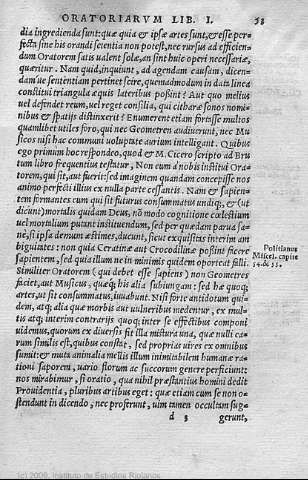 ORATORIARVM LIB. I. 58
dia ingredienda sunt: quæ quia & ipsæ artes sunt, & esse per-
fecta sine his orandi scientia non potest, nec rursus ad efficien-
dum Oratorem satis ualent solæ, an sint huic operi necessariæ,
quæritur. Nam quid, inquiunt, ad agendam causam, dicen-
dam'ue sententiam pertinet scire, quemadmodum in data linea
constitui triangula æquis lateribus possint? Aut quo melius
uel defendet reum, uel reget consilia, qui citharæ sonos nomi-
nibus & spatijs distinxerit? Enumerent etiam fortasse multos
quamlibet utiles foro, qui nec Geometren audiuerint, nec Mu
sicos nisi hac communi uoluptate aurium intelligant. Quibus
ego primum hoc respondeo, quod & M. Cicero scripto ad Bru
tum libro frequentius testatur, Non eum à nobis institui Ora-
torem, qui sit, aut fuerit: sed imaginem quandam concepisse nos
animo perfecti illius ex nulla parte cessantis. Nam & sapien-
tem formantes eum qui sit futurus consummatus undiq;, & (ut
dicunt) mortalis quidam Deus, nō modo cognitione cœlestium
uel mortalium putant instituendum, sed per quædam parua sa-
nè, si ipsa demum æstimes, ducunt, sicut exquisitas interim am
biguitates: non quia Ceratinæ aut Crocodilinæ possint facere
sapientem, sed quia illum ne in minimis quidem oporteat falli.
Similiter Oratorem (qui debet esse sapiens) non Geometres
faciet, aut Musicus, quæq; his alia subiungam: sed hæ quoq;
artes, ut sit consummatus, iuuabunt. Nisi forte antidotum qui-
dem, atq; alia quæ morbis aut uulneribus medentur, ex mul-
tis atq; interim contrarijs quoq; inter se effectibus componi
uidemus, quorum ex diuersis fit illa mistura una, quæ nulli ea-
rum similis est, quibus constat, sed proprias uires ex omnibus
sumit: & muta animalia mellis illum inimitabilem humanæ ra-
tioni saporem, uario florum ac succorum genere perficiunt:
nos mirabimur, si oratio, qua nihil præstantius homini dedit
Prouidentia, pluribus artibus eget: quæ etiam cum se non o-
stendunt in dicendo, nec proferunt, uim tamen occultam sug-
d 3 gerunt,
Politianus
Miscel. capite
54. & 55.
(c) 2006, Instituto de Estudios Riojanos